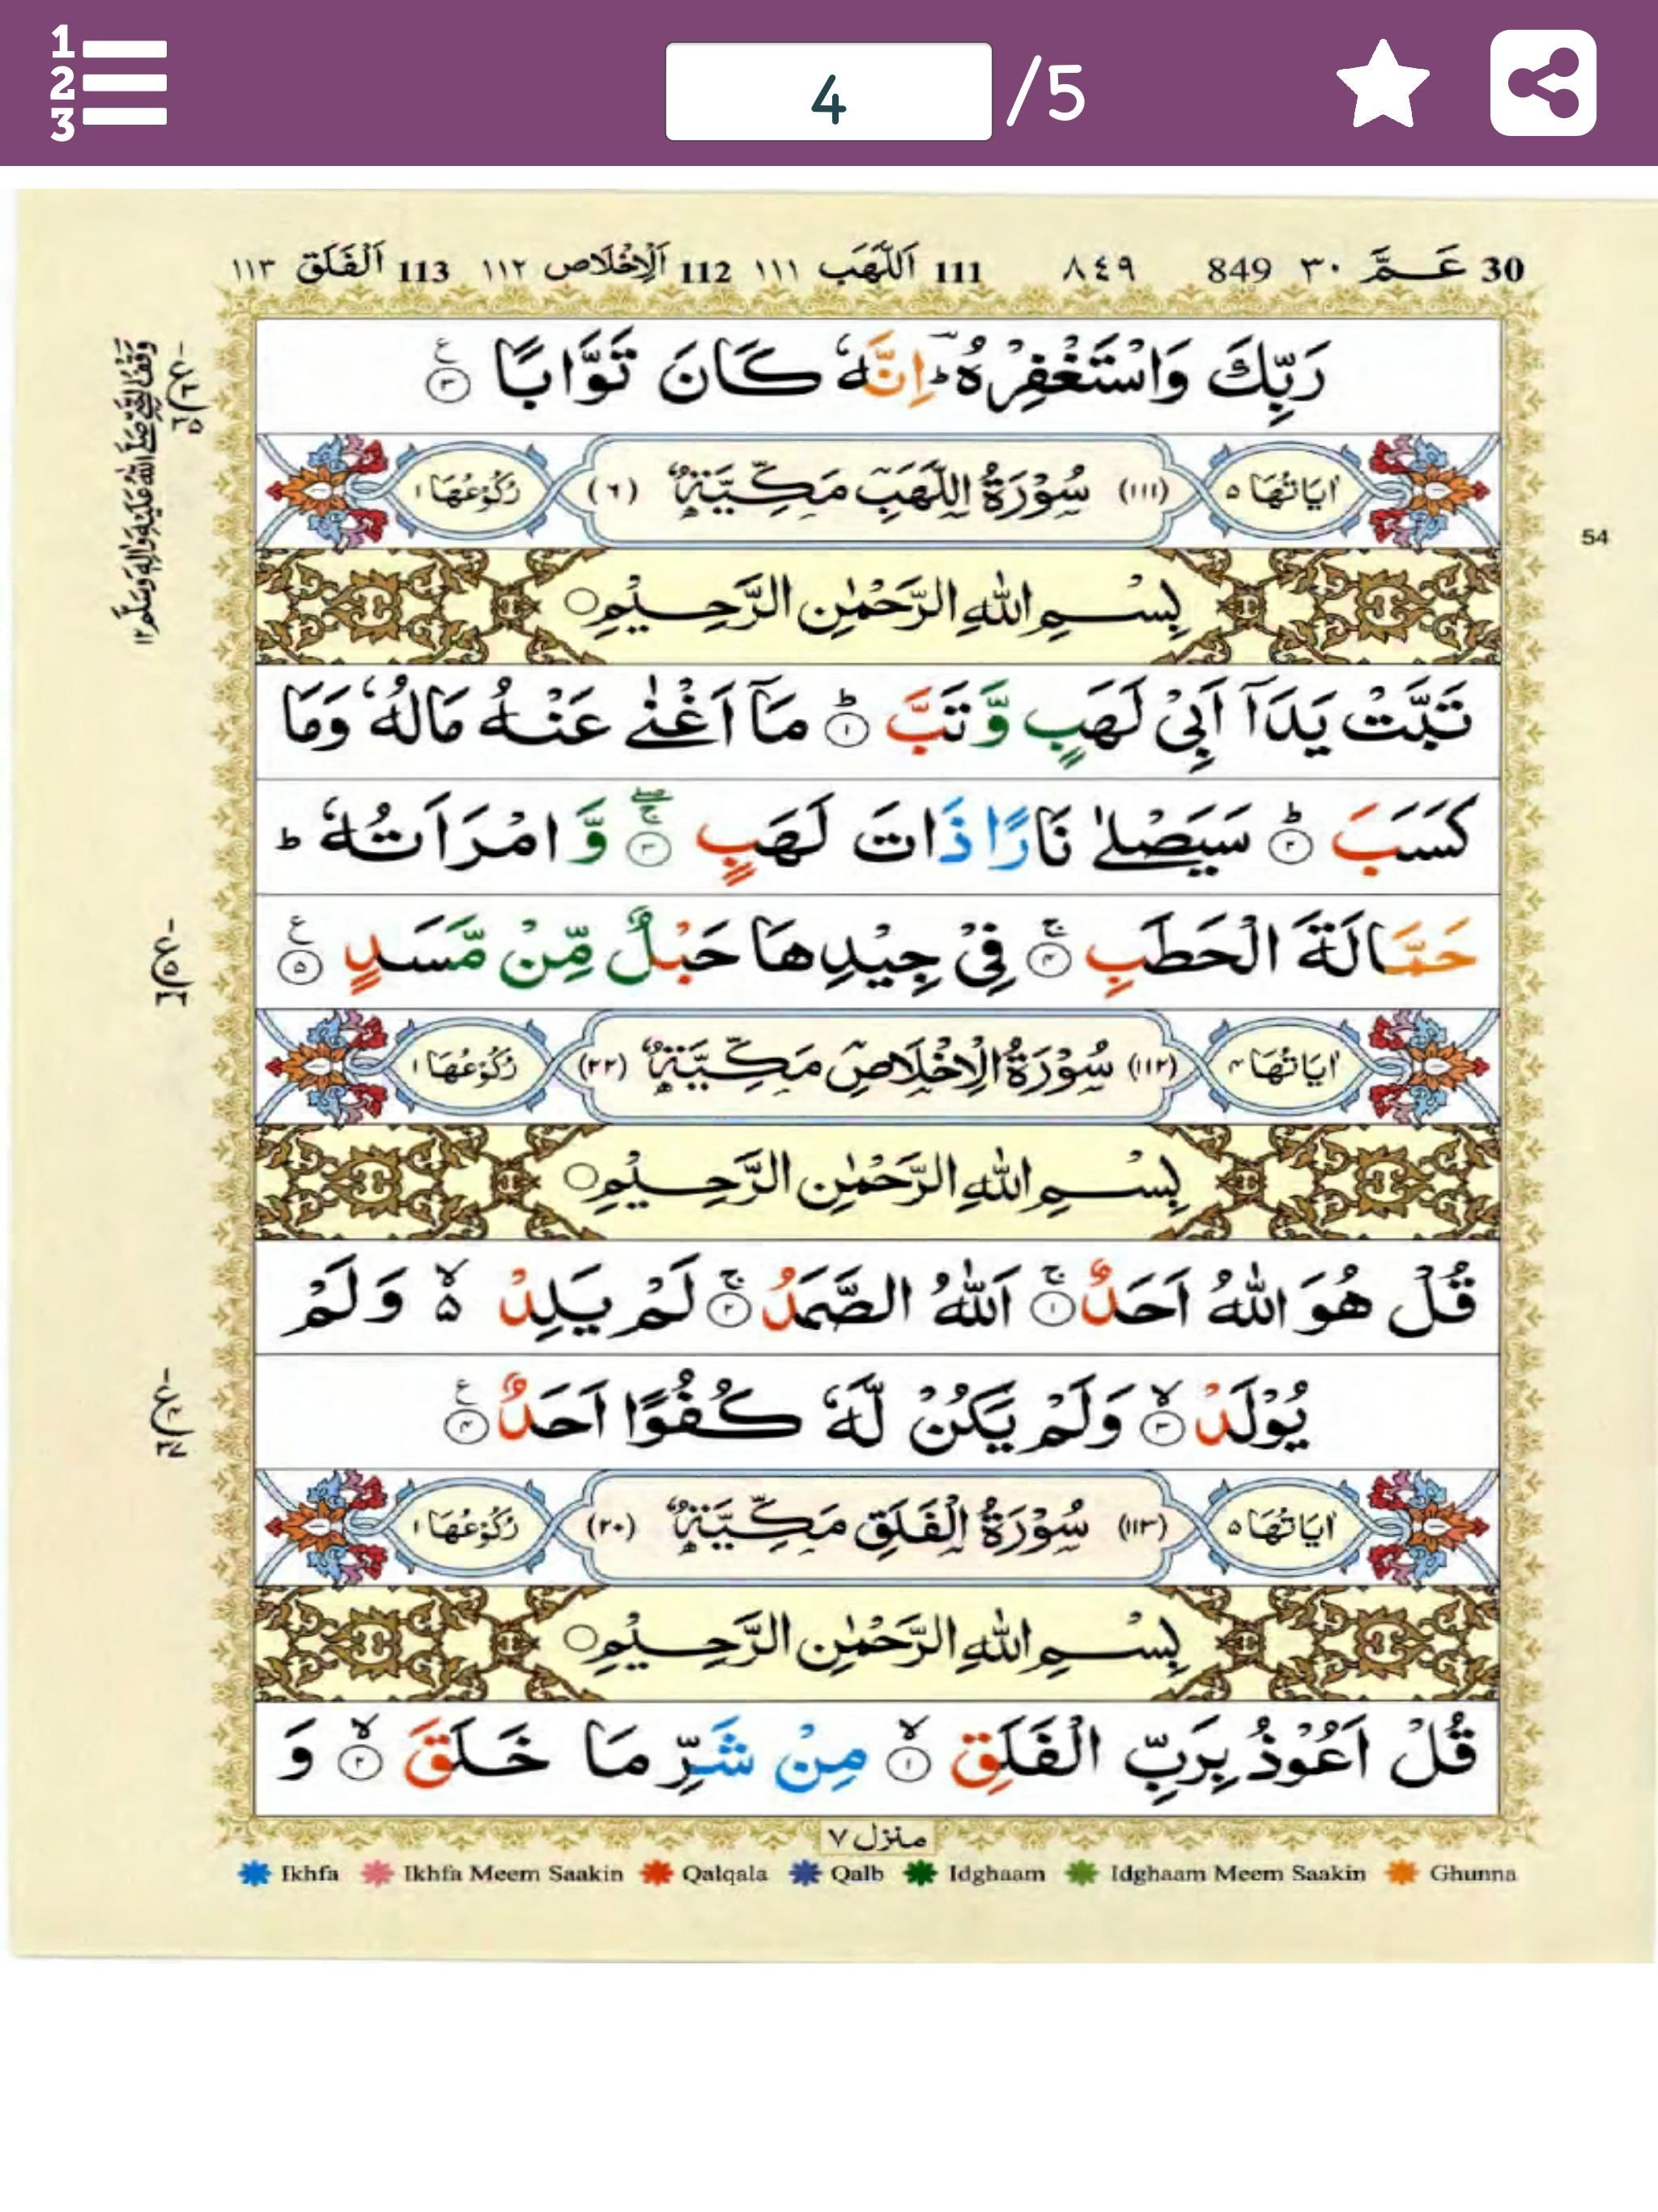 1
2
3
4 /5
30 عَمَّ ٣٠ 849 ٨٤٩ 111 اَللَّهَب ١١١ 112 اَلْاِخْلَاص ١١٢ 113 اَلْفَلَق ١١٣
رَبِّكَ وَاسْتَغْفِرْهُ ؕ اِنَّهٗ كَانَ تَوَّابًا ۝٣ ع
اٰيَاتُهَا ٥ (١١١) سُوْرَةُ اللَّهَبِ مَكِّيَّةٌ (٦) رُكُوْعُهَا ١
54
بِسْمِ اللّٰهِ الرَّحْمٰنِ الرَّحِيْمِ ۝
تَبَّتْ يَدَاۤ اَبِيْ لَهَبٍ وَّ تَبَّ ؕ۝١ مَاۤ اَغْنٰى عَنْهُ مَالُهٗ وَمَا
كَسَبَ ؕ۝٢ سَيَصْلٰى نَارًا ذَاتَ لَهَبٍ ۚۖ۝٣ وَّ امْرَاَتُهٗ ؕ
حَمَّالَةَ الْحَطَبِ ۚ۝٤ فِيْ جِيْدِهَا حَبْلٌ مِّنْ مَّسَدٍ ۝٥ ع
اٰيَاتُهَا ٤ (١١٢) سُوْرَةُ الْاِخْلَاصِ مَكِّيَّةٌ (٢٢) رُكُوْعُهَا ١
بِسْمِ اللّٰهِ الرَّحْمٰنِ الرَّحِيْمِ ۝
قُلْ هُوَ اللّٰهُ اَحَدٌ ۚ۝١ اَللّٰهُ الصَّمَدُ ۚ۝٢ لَمْ يَلِدْ ۙ۬ وَلَمْ
يُوْلَدْ ۙ۝٣ وَلَمْ يَكُنْ لَّهٗ كُفُوًا اَحَدٌ ۝٤ ع
اٰيَاتُهَا ٥ (١١٣) سُوْرَةُ الْفَلَقِ مَكِّيَّةٌ (٢٠) رُكُوْعُهَا ١
بِسْمِ اللّٰهِ الرَّحْمٰنِ الرَّحِيْمِ ۝
قُلْ اَعُوْذُ بِرَبِّ الْفَلَقِ ۙ۝١ مِنْ شَرِّ مَا خَلَقَ ۙ۝٢ وَ
منزل ٧
Ikhfa Ikhfa Meem Saakin Qalqala Qalb Idghaam Idghaam Meem Saakin Ghunna